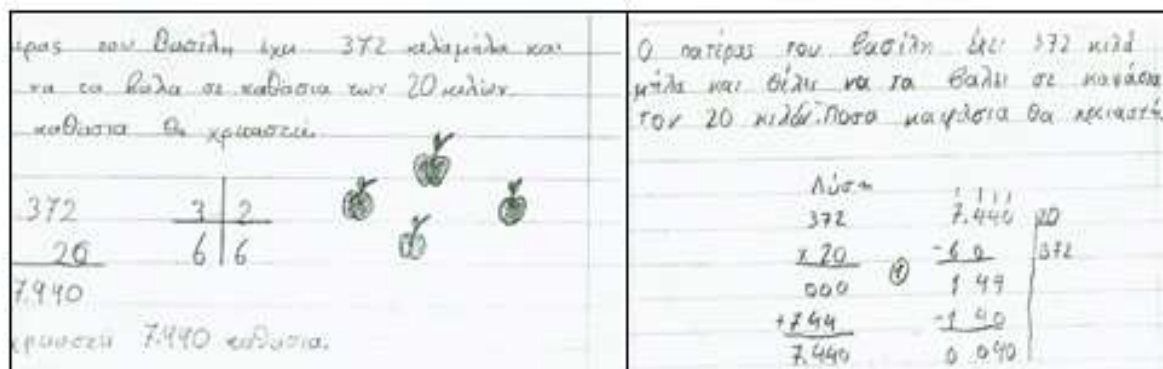 έρας του Βασίλη έχει 372 κιλαμήλα και
να τα βάλει σε καθάσια των 20 κιλών.
καθάσια θα χρειαστεί.
372
20
7.440
3 2
6 6
χρειαστεί 7.440 καθάσια.
Ο πατέρας του Βασίλη έχει 372 κιλά
μήλα και θέλει να τα βάλει σε καφάσια
τον 20 κιλών. Ποσα καφάσια θα χρειαστή.
Λύση
372
x 20
000
+744
7.440
7.440 20
-60 372
1 44
-1 40
0 040